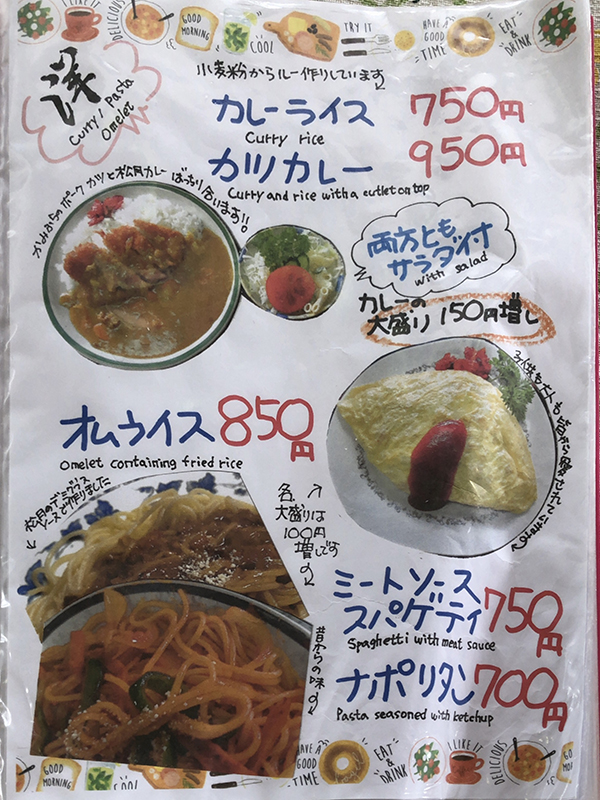 DELICIOUS
GOOD MORNING
COOL
TRY IT
HAVE A GOOD TIME
EAT & DRINK
洋
Curry / Pasta
Omelet
小麦粉からルー作りしています
カレーライス 750円
Curry rice
カツカレー 950円
Curry and rice with a cutlet on top
ポークカツと松月カレー ばっちり合います!!
両方とも
サラダ付
with salad
カレーの
大盛り 150円増し
オムライス 850円
Omelet containing fried rice
松月のデミグラス
ソースで作りました
各
大盛りは
100円
増しです
ミートソース
スパゲティ 750円
Spaghetti with meat sauce
昔からの味
ナポリタン 700円
Pasta seasoned with ketchup
GOOD MORNING
COOL
TRY IT
HAVE A GOOD TIME
EAT & DRINK
I LIKE IT
DELICIOUS